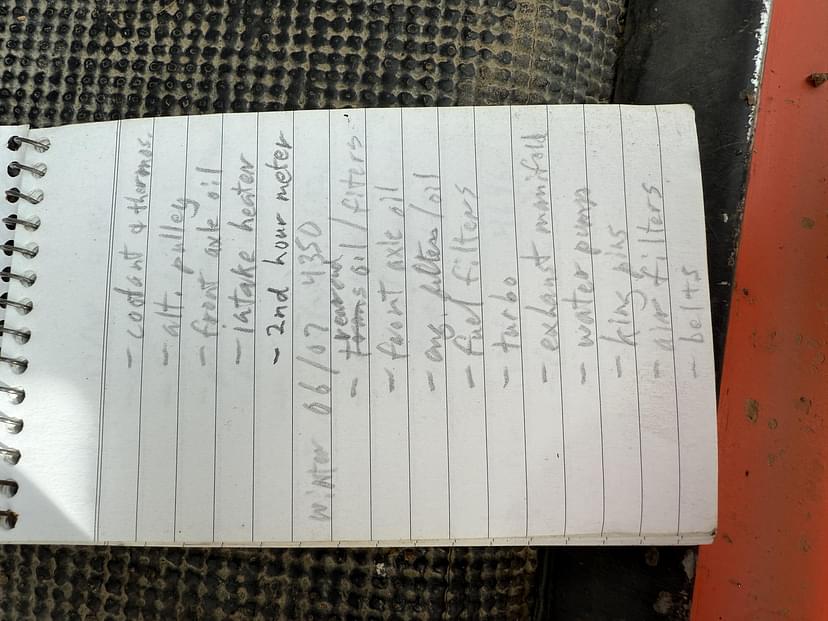 - coolant & thermos.
- alt. pulley
- front axle oil
- intake heater
- 2nd hour meter
winter 06/07 4350
- rearend oil/fiters
- front axle oil
- eng. filters/oil
- fuel filters
- turbo
- exhaust manifold
- water pump
- king pins
- air filters
- belts